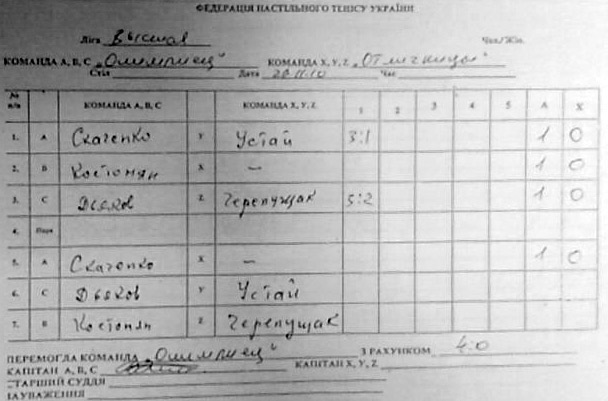 ФЕДЕРАЦІЯ НАСТІЛЬНОГО ТЕНІСУ УКРАЇНИ
Ліга Высшая Чол./Жін.
КОМАНДА А, В, С „Олимпиец" КОМАНДА X, Y, Z „Отличницы"
Стіл Дата 20.11.10 Час
№ п/п КОМАНДА А, В, С КОМАНДА X, Y, Z 1 2 3 4 5 А Х
1. А Скаченко Y Устай 3:1 1 0
2. В Костонян X – 1 0
3. С Дьяков Z Черепущак 3:2 1 0
4. Пара
5. А Скаченко X – 1 0
6. С Дьяков Y Устай
7. В Костонян Z Черепущак
ПЕРЕМОГЛА КОМАНДА „Олимпиец" З РАХУНКОМ 4:0
КАПІТАН А, В, С КАПІТАН X, Y, Z
СТАРШИЙ СУДДЯ
ЗАУВАЖЕННЯ